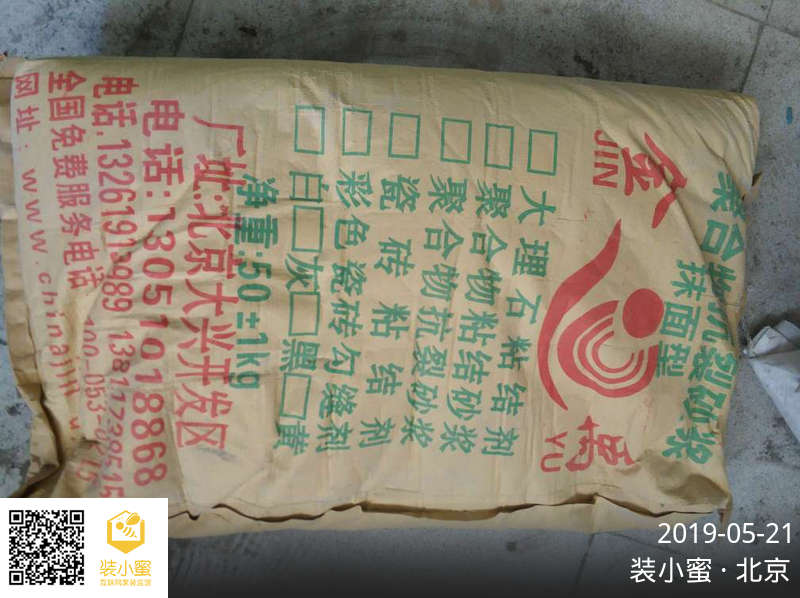 聚合物抗裂砂浆
抹面型
金 禹
JIN YU
□大理石粘结剂
□聚合物粘结砂浆
□聚合物抗裂砂浆
□瓷砖粘结剂
□彩色瓷砖勾缝剂
□白□灰□黑□黄
净重:50±1kg
厂址:北京大兴开发区
电话:13051018868
电话:13261913989 13811738515
全国免费服务电话
网址:www.chinaji
装小蜜
互联网家装监理
2019-05-21
装小蜜·北京